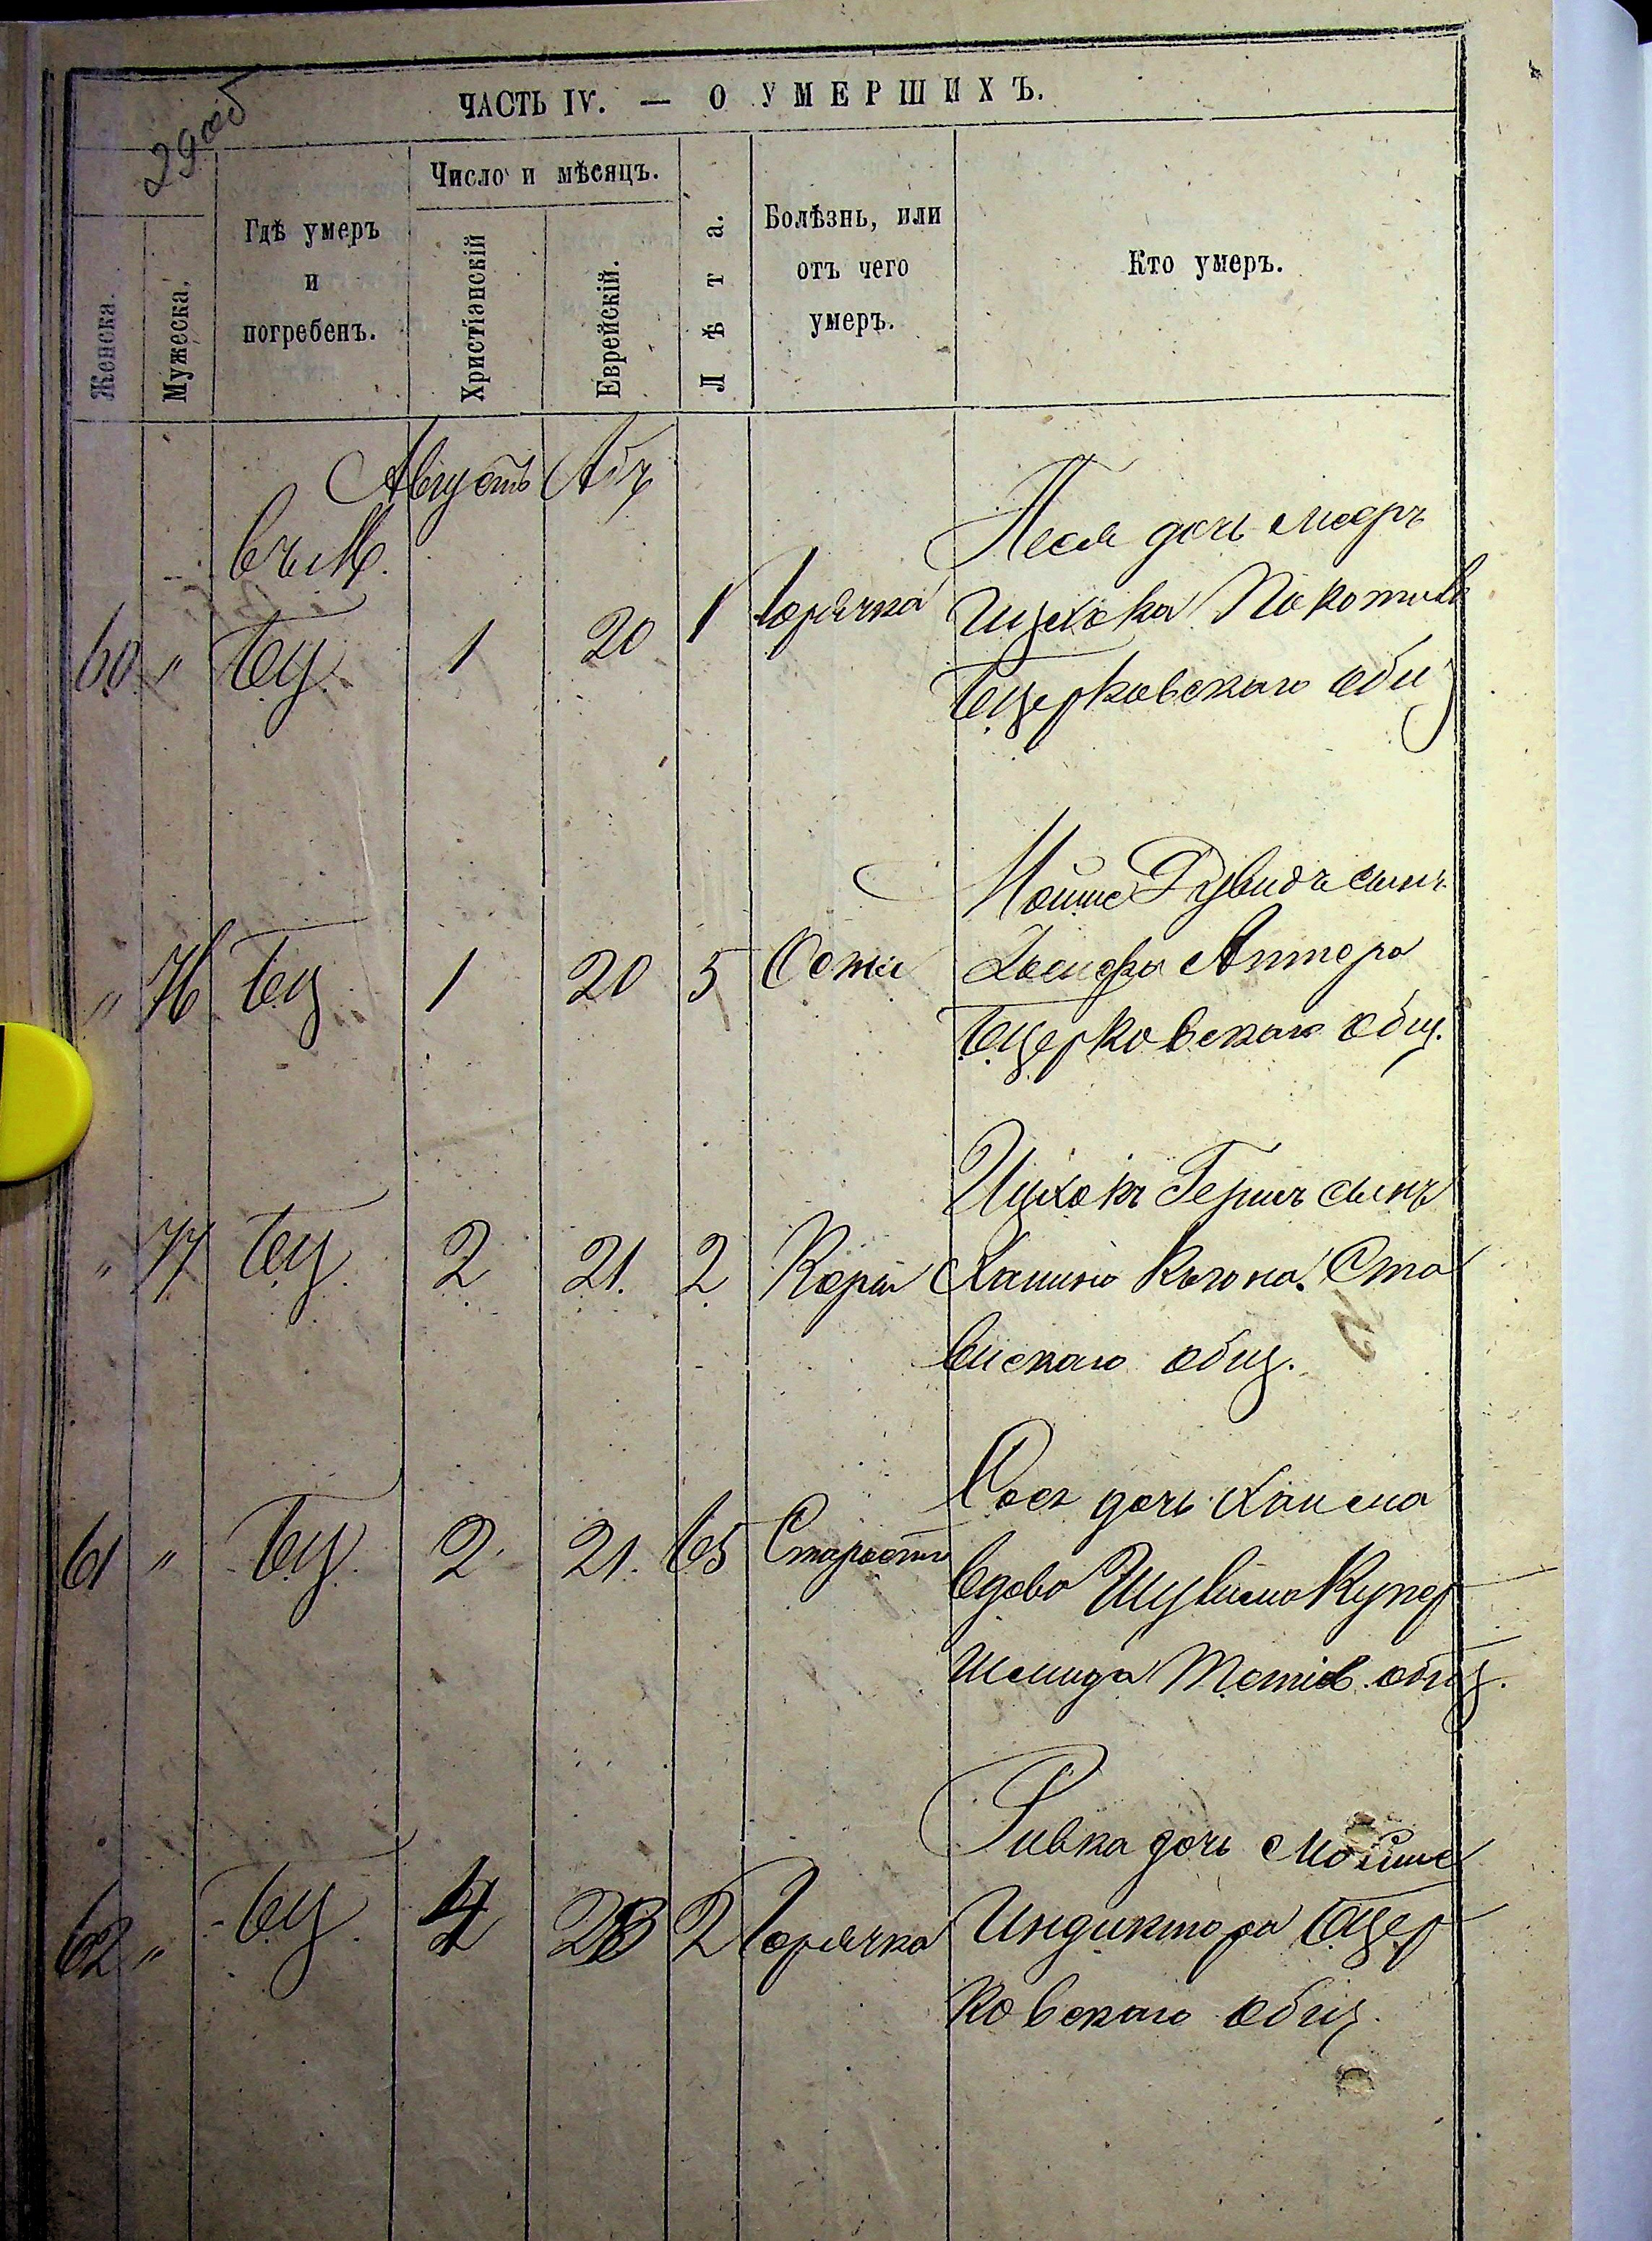 29 об
ЧАСТЬ IV. — О УМЕРШИХЪ.
Женска.
Мужеска.
Гдѣ умеръ
и
погребенъ.
Число и мѣсяцъ.
Христіанскій
Еврейскій.
Лѣта.
Болѣзнь, или
отъ чего
умеръ.
Кто умеръ.
Августъ Абъ
въ М.
60 " БЦ 1 20 1 Горячка
дочь
Ицхока
БЦерковскаго общ
" 76 БЦ 1 20 5 Оспы
Мойше Дувидъ сынъ
Іосифа Аптера
БЦерковскаго общ.
" 77 БЦ 2 21. 2 Кори
Ицхокъ Гершъ сынъ
Хаима Когона Ста
вискаго общ.
61 " БЦ 2 21. 65 Старости
дочь Хаима
вдова Купер
шмида Тетіев. общ.
62 " БЦ 4 23 2 Горячка
Ривка дочь Мойше
Индиктора БЦер
ковскаго общ.